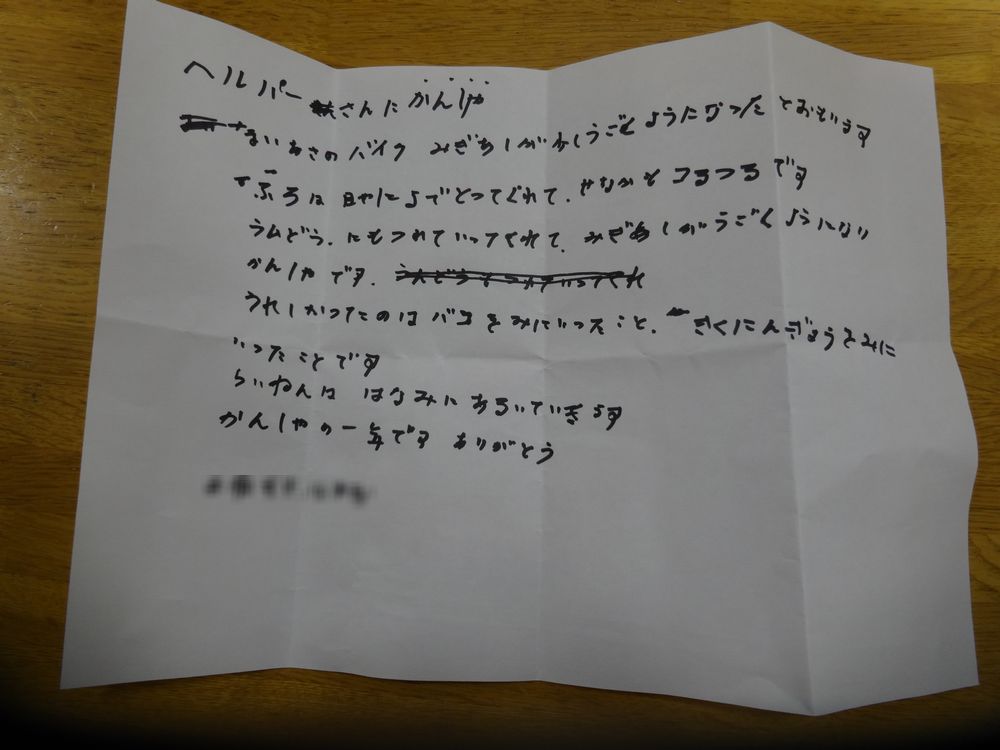 ヘルパーさんにかんしゃ
まいあさのバイク みぎあしがすこしうごくようになったとおもいます
ふろは 日やによでとってくれて、せなかもつるつるです
うんどう、にもつれていってくれて、みぎあしがうごくようになり
かんしゃです、
うれしかったのはバラをみにいったこと、きくにんぎょうをみに
いったことです
らいねんは はなみにあるいていきます
かんしゃの一年です ありがとう